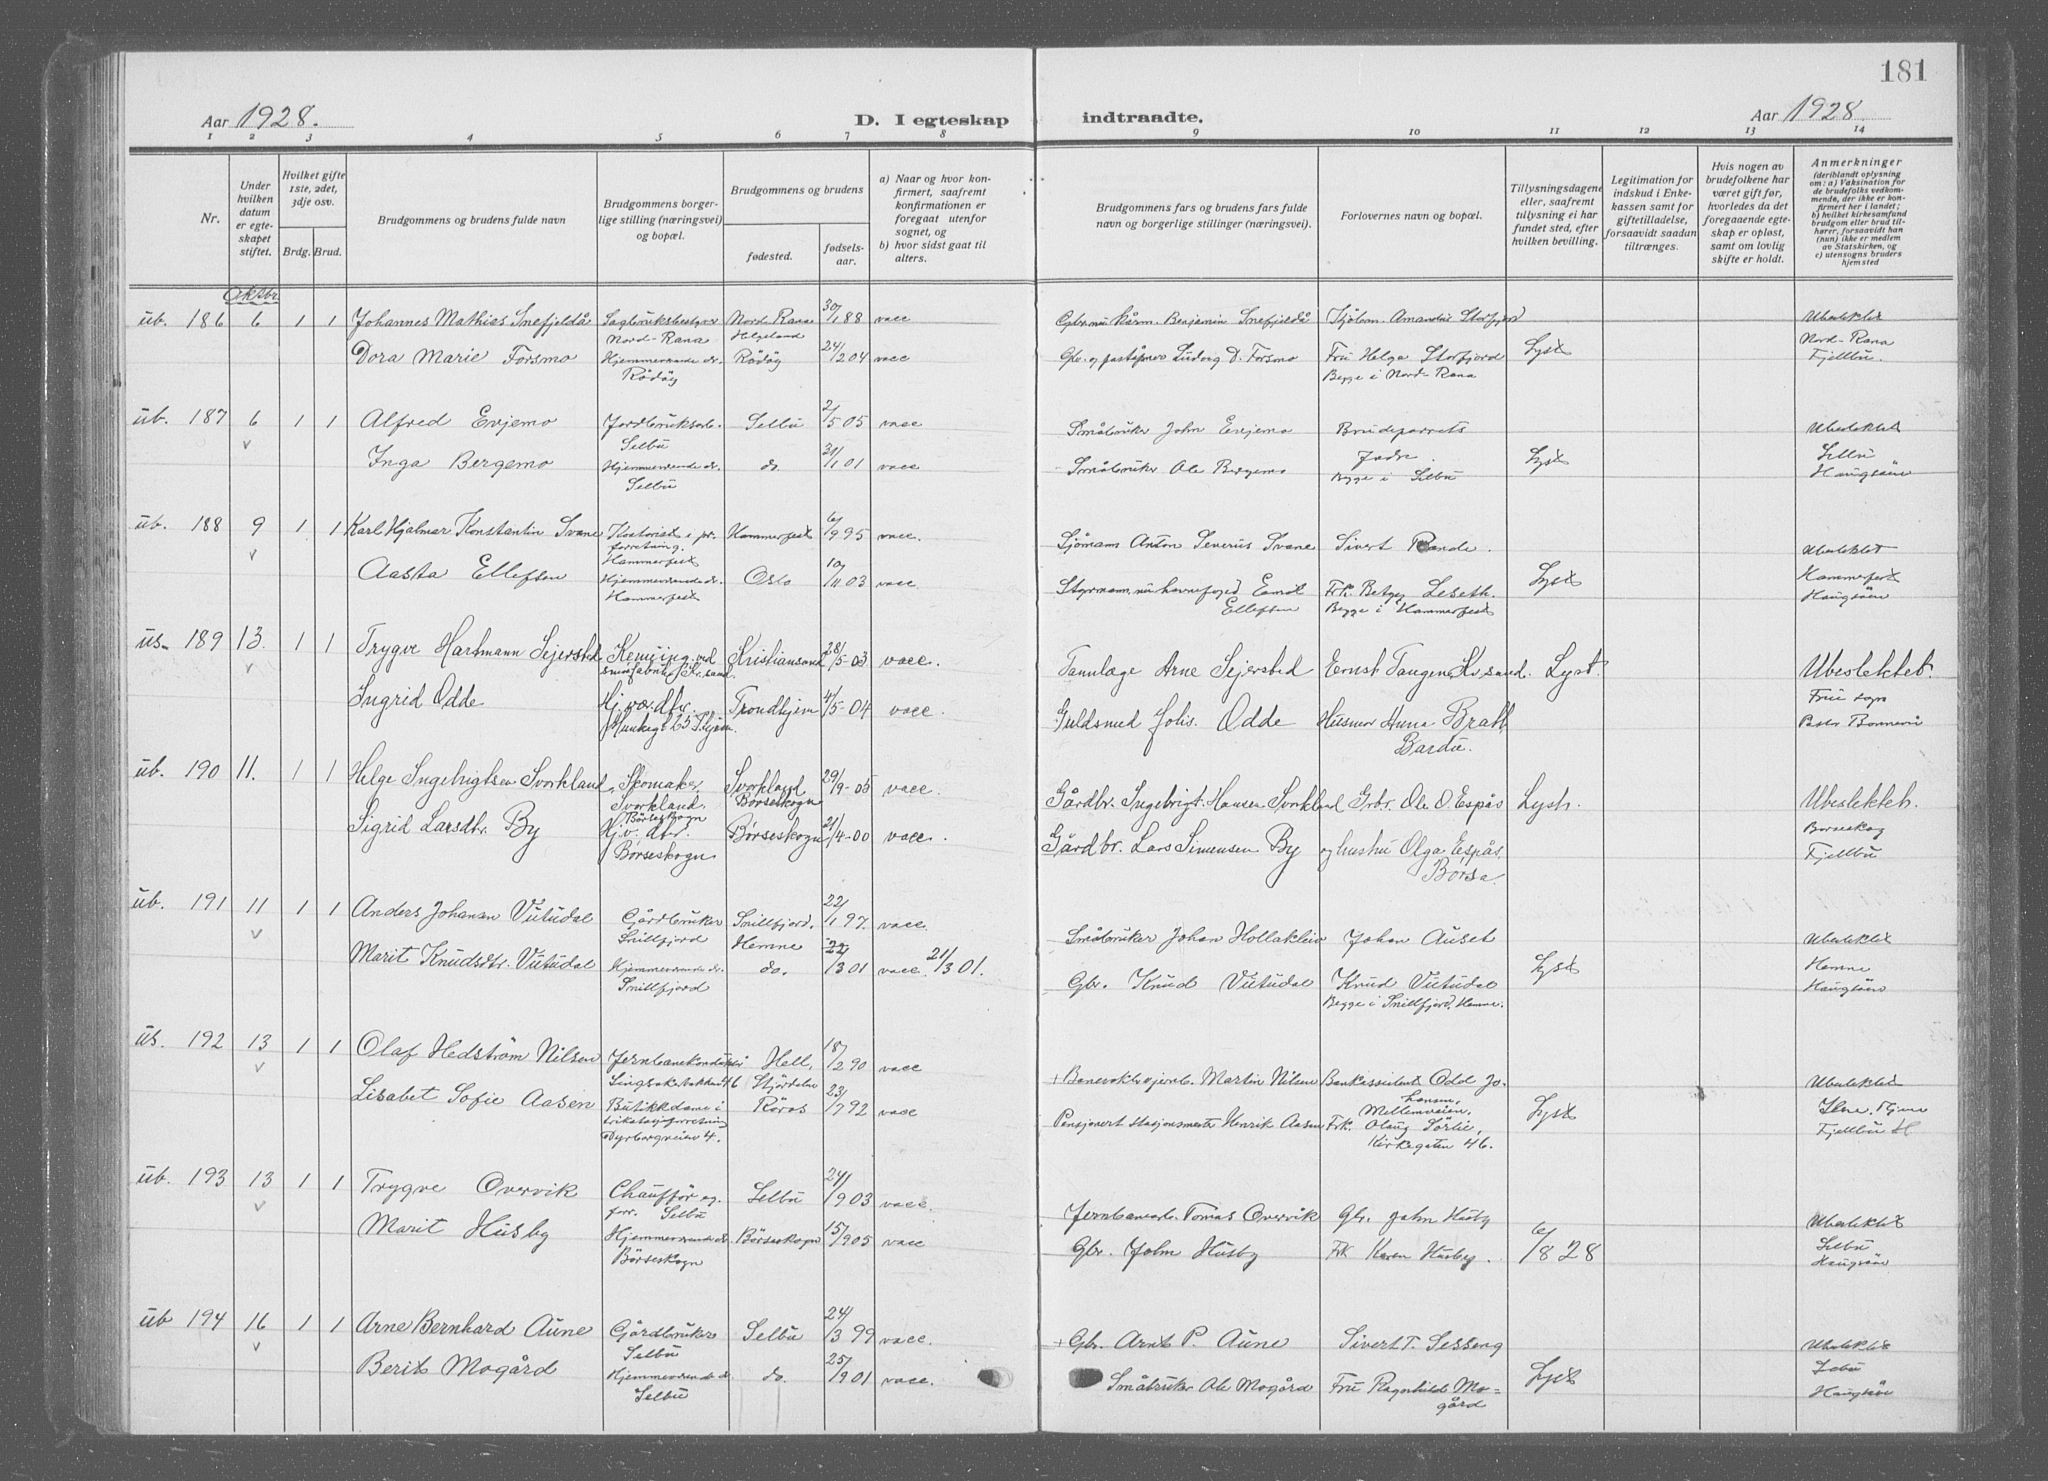 181
Aar 1928. D. I egteskap indtraadte. Aar 1928
1 2 3 4 5 6 7 8 9 10 11 12 13 14
Nr.
Under hvilken datum er egteskapet stiftet.
Hvilket gifte 1ste, 2det, 3dje osv.
Brdg. Brud.
Brudgommens og brudens fulde navn
Brudgommens borgerlige stilling (næringsvei) og bopæl.
Brudgommens og brudens
fødested. fødselsaar.
a) Naar og hvor konfirmert, saafremt konfirmationen er foregaat utenfor sognet, og
b) hvor sidst gaat til alters.
Brudgommens fars og brudens fars fulde navn og borgerlige stillinger (næringsvei).
Forlovernes navn og bopæl.
Tillysningsdagene eller, saafremt tillysning ei har fundet sted, efter hvilken bevilling.
Legitimation for indskud i Enkekassen samt for giftetilladelse, forsaavidt saadan tiltrænges.
Hvis nogen av brudefolkene har været gift før, hvorledes da det foregaaende egteskap er opløst, samt om lovlig skifte er holdt.
Anmerkninger
(deriblandt oplysning om: a) Vaksination for de brudefolks vedkommende, der ikke er konfirmert her i landet; b) hvilket kirkesamfund brudgom eller brud tilhører, forsaavidt han (hun) ikke er medlem av Statskirken, og c) utensogns bruders hjemsted
Oktbr.
ub. 186 6 1 1 Johannes Mathias Snefjeldå Sagbruksbestyrer Nord-Rana 30/1 88 vacc Benjamin Snefjeldå Amandus Storfjord Ubeslektet
Nord-Rana Helgeland Nord-Rana
Dora Marie Forsmo Hjemmeværende dr. Rödöy 24/2 04 vacc Ludvig D. Forsmo Fru Helga Storfjord Lyst Fjellbu.
Rödöy Begge i Nord-Rana
ub. 187 6 1 1 Alfred Evjemo Jordbruksarb. Selbu 2/5 05 vacc Småbruker John Evjemo Brudeparrets Ubeslektet
Selbu Fedre. Lyst Selbu
Inga Bergemo Hjemmeværende dr. do 31/1 01 vacc Småbruker Ole Bergemo Begge i Selbu Haugsöen
Selbu
ub. 188 9 1 1 Karl Hjalmar Konstantin Svane Kontorist i pr. Hammerfest 6/9 95 vacc. Sjömann Anton Severus Svane Sivert Rande. Ubeslektet
forretning.
Hammerfest Hammerfest
Aasta Ellefsen Hjemmeværende dr. Oslo 10/11 03 vacc Styrmann nu havnefoged Emil Frk. Betzy Leseth. Lyst Haugsöen
Hammerfest Ellefsen Begge i Hammerfest
us. 189 13. 1 1 Trygve Hartmann Sejersted Kemiing. ved Kristiansand 28/5-03 vacc. Tannlæge Arne Sejersted Ernst Tangen, Kr.sand. Lyst. Ubeslektet.
Kr.sand. Frue sogn
Ingrid Odde Hj. vær. dtr. Trondhjem 4/5-04 vacc. Guldsmed Johs. Odde Anna Bratt, Pastor
Munkegt 25 T.hjem. Bardu.
ub. 190 11. 1 1 Helge Ingebrigtsen Svorkland, Skomaker, Svorkland 29/9-05 vacc. Gårdbr. Ingebrigt Hansen Svorkland Grbr. Ole O. Espås Lyst. Ubeslektet.
Svorkland. Børseskogn
Børseskogn Børseskog
Sigrid Larsdtr. By Hj. v. dtr. Børseskogn 21/4-00 vacc. Gårdbr. Lars Simensen By og hustru Olga Espås, Fjellbu
Børseskogn Börsa.
ub. 191 11 1 1 Anders Johansen Vutudal Gårdbruker Snillfjord. 22/1 97. vacc. Småbruker Johan Hollakleiv Johan Auset Ubeslektet
Snillfjord Hemne Hemne
Marit Knudsdtr. Vutudal Hjemmeværende dr. do. 22/3 01 vacc. 21/3 01. Gbr. Knud Vutudal Knud Vutudal Lyst Haugsöen
Snillfjord Begge i Snillfjord, Hemne.
us. 192 13 1 1 Olaf Hedström Nilsen Jernbanekonduktör Hell, 18/2 90 vacc + Martin Nilsen Bankassistent Odd Jo- Ubeslektet
Singsakerbakken 46 Stjördalen hansen,
Lisabet Sofie Aasen Butikkdame i Röros 23/7 92 vacc Pensjonert stasjonsmester Henrik Aasen Mellemveien, Lyst Ilen, Tr.hjem
trikotasjeforretning Frk. Olaug Sörlie, Fjellbu
Dyrborgveien 4. Kirkegaten 46.
ub. 193 13 1 1 Trygve Overvik Chauffør og Selbu 24/9 03 vacc. Jernbanearb. Tomas Overvik Gbr. John Husby Ubeslektet
forr. Selbu Selbu
Marit Husby Hjemmeværende dr. Börseskogn 15/9 05 vacc Gbr. John Husby Frk Karen Husby. 6/8 28 Haugsöen
Börseskogn
ub 194 16 1 1 Arne Bernhard Aune Gårdbruker Selbu 24/3 99 vacc. + Gbr. Arnt P. Aune Sivert T. Sesseng Ubeslektet
Selbu Selbu
Berit Mogård Hjemmeværende dr. do. 25/9 01 vacc. Småbruker Ole Mogård Fru Ragnhild Mo- Lyst Haugsöen
Selbu gård